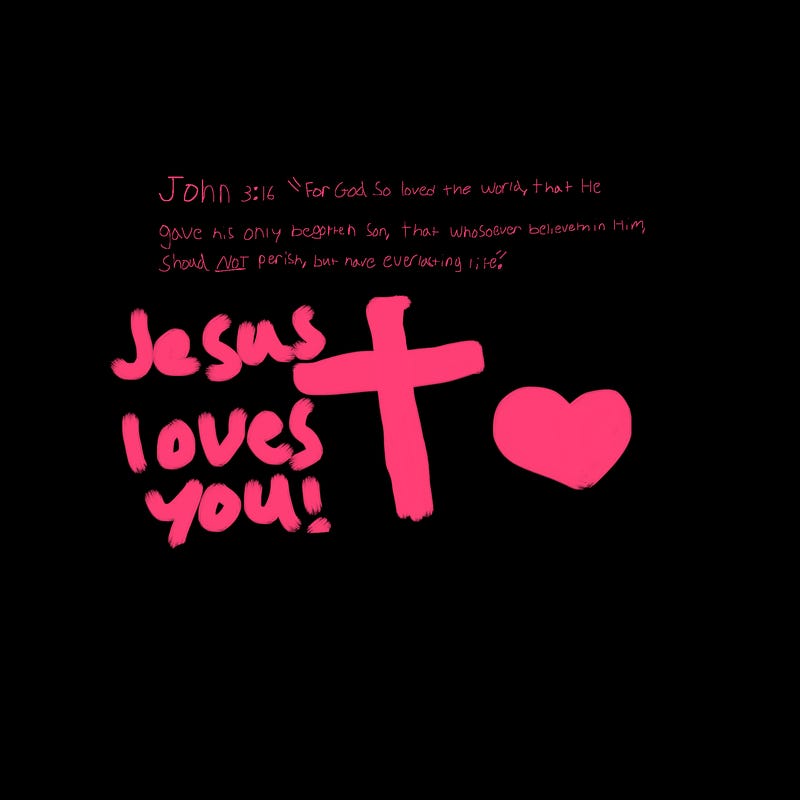 John 3:16 "For God So loved the world, that He
gave his only begotten Son, that whosoever believeth in Him,
Should NOT perish, but have everlasting life."
Jesus
loves
you!